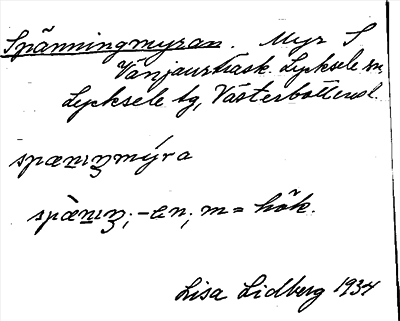 Spänningmyran. Myr S
Vänjaurträsk. Lycksele sn,
Lycksele tg, Västerbottensl.
spæniŋmýra
spæ̀niŋ; -en, m = hök.
Lisa Lidberg 1934